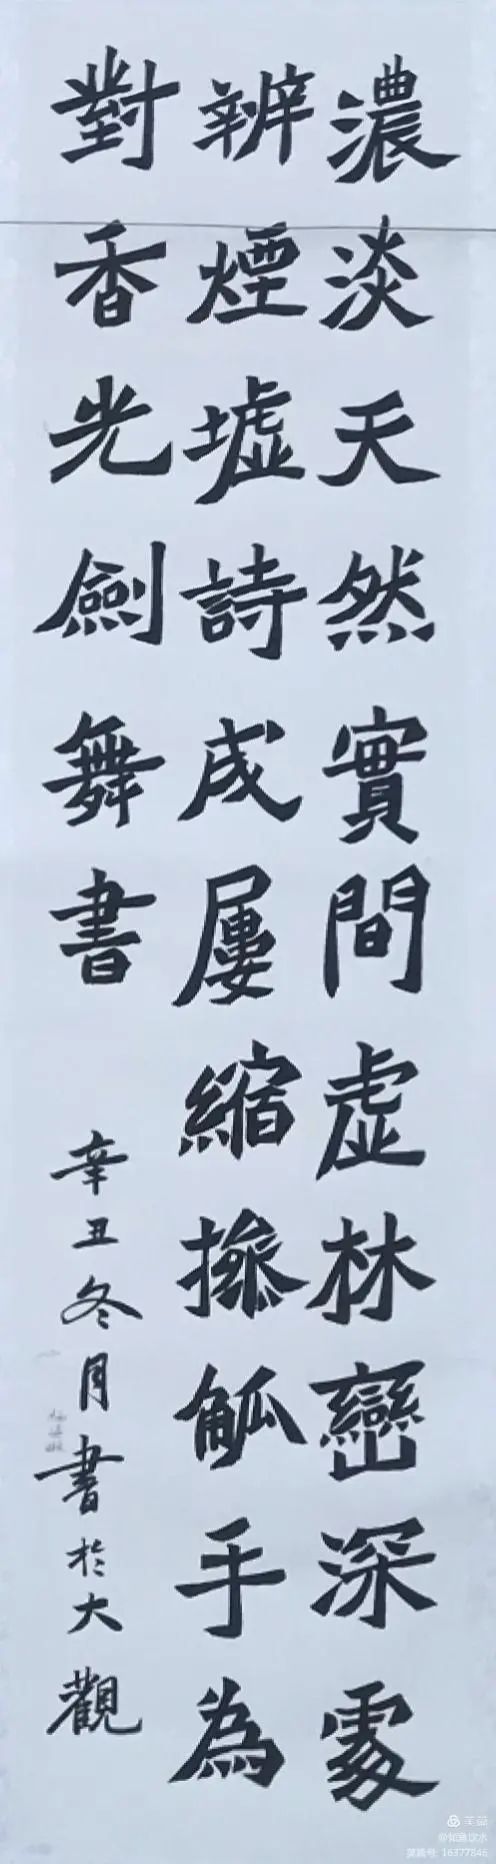 濃淡天然實間虛林巒深處
辨煙墟詩成屢縮操觚手為
對香光劍舞書
辛丑冬月書於大觀
美篇
@如鱼饮水
美篇号: 16377846